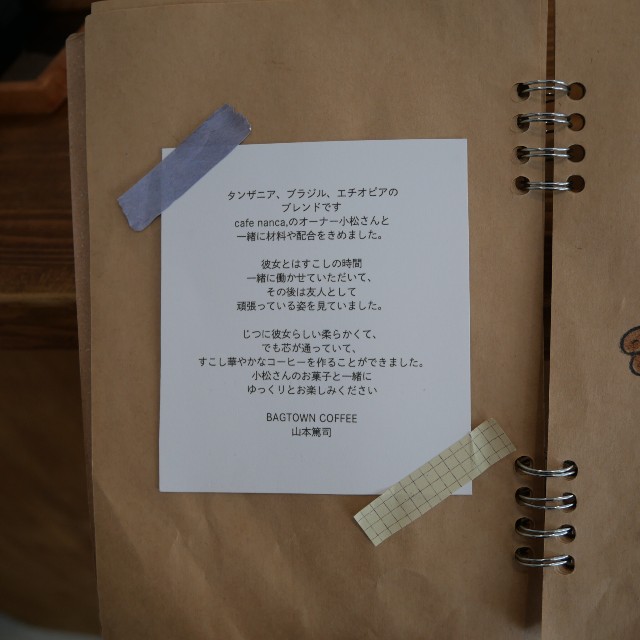 タンザニア、ブラジル、エチオピアの
ブレンドです
cafe nanca,のオーナー小松さんと
一緒に材料や配合をきめました。
彼女とはすこしの時間
一緒に働かせていただいて、
その後は友人として
頑張っている姿を見ていました。
じつに彼女らしい柔らかくて、
でも芯が通っていて、
すこし華やかなコーヒーを作ることができました。
小松さんのお菓子と一緒に
ゆっくりとお楽しみください
BAGTOWN COFFEE
山本篤司